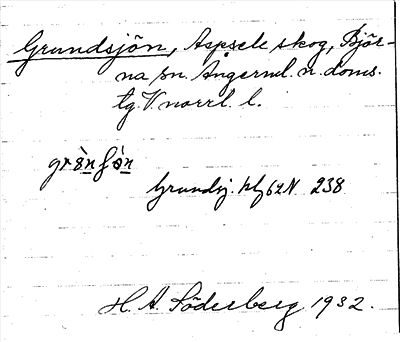 Grundsjön, Aspsele skog, Björ-
na sn. Ångerml. n. doms.
tg. V. norrl. l.
Grundsj. kbl 62 N 238
H. A. Söderberg 1932.